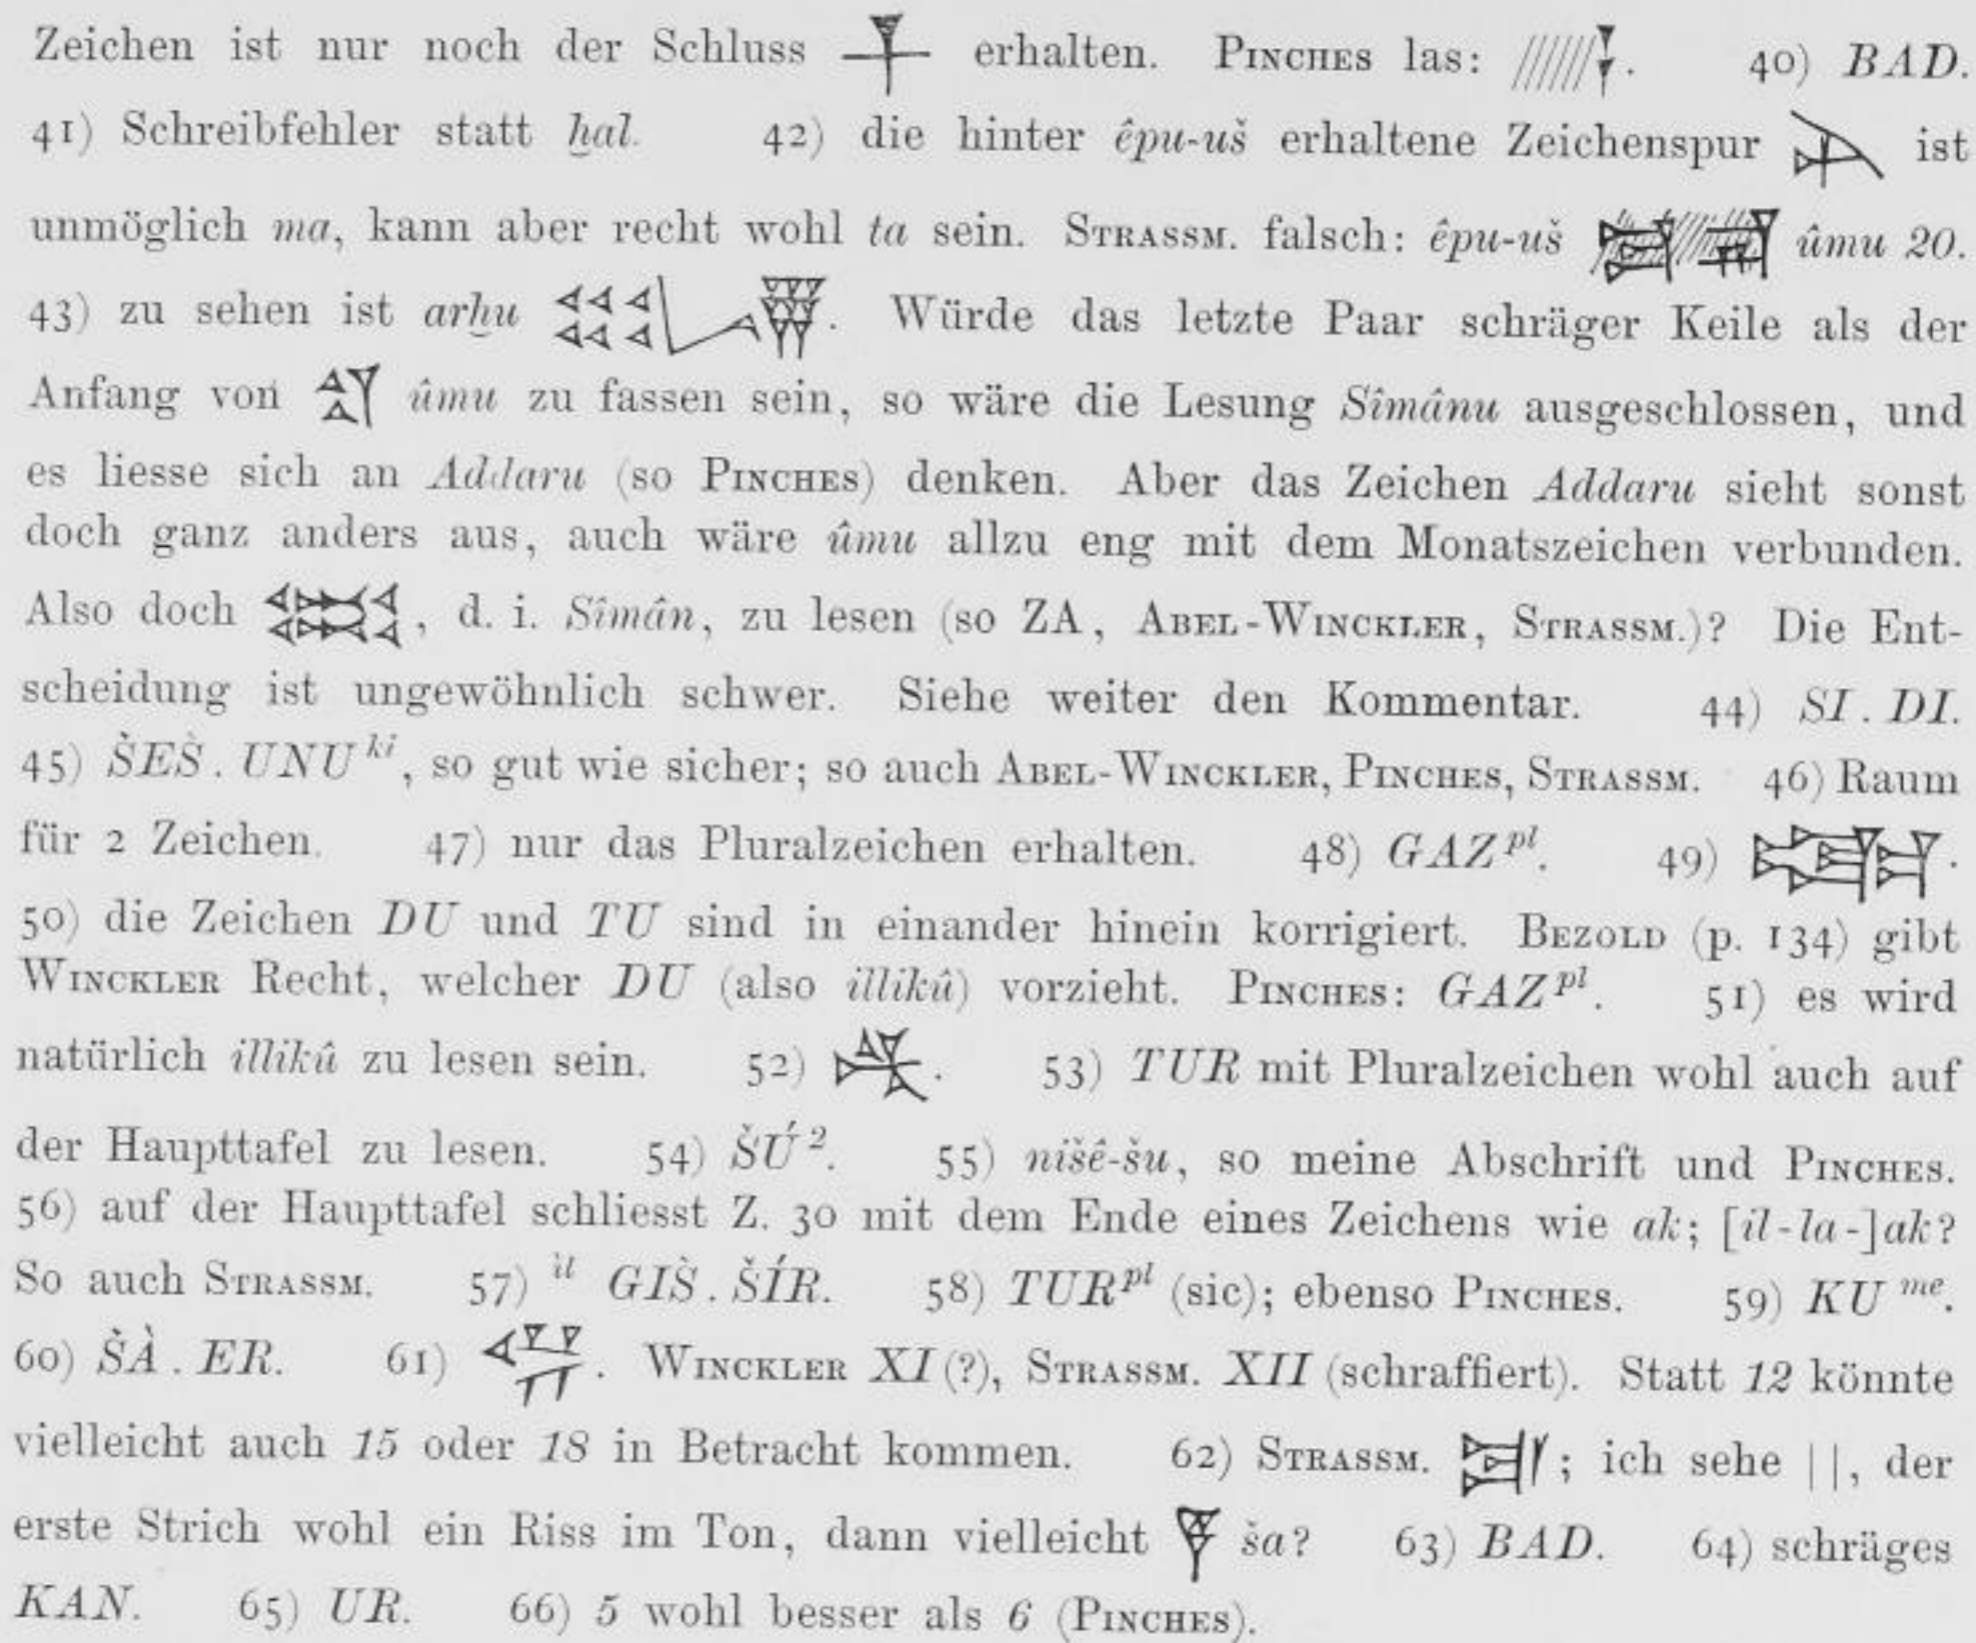 Zeichen ist nur noch der Schluss erhalten. PINCHES las: . 40) BAD.
41) Schreibfehler statt ḫal. 42) die hinter êpu-uš erhaltene Zeichenspur ist
unmöglich ma, kann aber recht wohl ta sein. STRASSM. falsch: êpu-uš ûmu 20.
43) zu sehen ist arḫu . Würde das letzte Paar schräger Keile als der
Anfang von ûmu zu fassen sein, so wäre die Lesung Sîmânu ausgeschlossen, und
es liesse sich an Addaru (so PINCHES) denken. Aber das Zeichen Addaru sieht sonst
doch ganz anders aus, auch wäre ûmu allzu eng mit dem Monatszeichen verbunden.
Also doch , d. i. Sîmân, zu lesen (so ZA, ABEL-WINCKLER, STRASSM.)? Die Ent-
scheidung ist ungewöhnlich schwer. Siehe weiter den Kommentar. 44) SI. DI.
45) ŠEŠ. UNU ki, so gut wie sicher; so auch ABEL-WINCKLER, PINCHES, STRASSM. 46) Raum
für 2 Zeichen. 47) nur das Pluralzeichen erhalten. 48) GAZ pl. 49) .
50) die Zeichen DU und TU sind in einander hinein korrigiert. BEZOLD (p. 134) gibt
WINCKLER Recht, welcher DU (also illikû) vorzieht. PINCHES: GAZ pl. 51) es wird
natürlich illikû zu lesen sein. 52) . 53) TUR mit Pluralzeichen wohl auch auf
der Haupttafel zu lesen. 54) ŠÚ 2. 55) nišê-šu, so meine Abschrift und PINCHES.
56) auf der Haupttafel schliesst Z. 30 mit dem Ende eines Zeichens wie ak; [il-la-]ak?
So auch STRASSM. 57) il GIŠ. ŠÍR. 58) TUR pl (sic); ebenso PINCHES. 59) KU me.
60) ŠÀ. ER. 61) . WINCKLER XI (?), STRASSM. XII (schraffiert). Statt 12 könnte
vielleicht auch 15 oder 18 in Betracht kommen. 62) STRASSM. ; ich sehe ||, der
erste Strich wohl ein Riss im Ton, dann vielleicht ša? 63) BAD. 64) schräges
KAN. 65) UR. 66) 5 wohl besser als 6 (PINCHES).